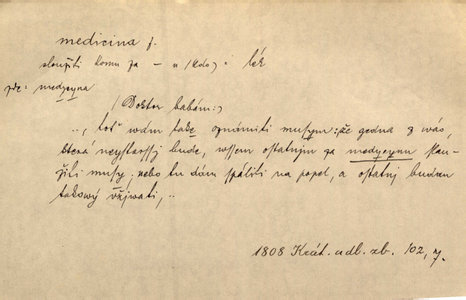 medicina f.
sloužiti komu za – u /kdo/ = lék
pře: medycyna
/Doktor babám:/
„ toť wám také oznámiti musym: že gedna z wás,
která neystarssj bude, wssem ostatnjm za medycynu slau-
žiti musý, nebo tu dám spáliti na popel, a ostatnj budau
takowý vžjwati, „
1808 Krát. adl. zb. 102, 7.